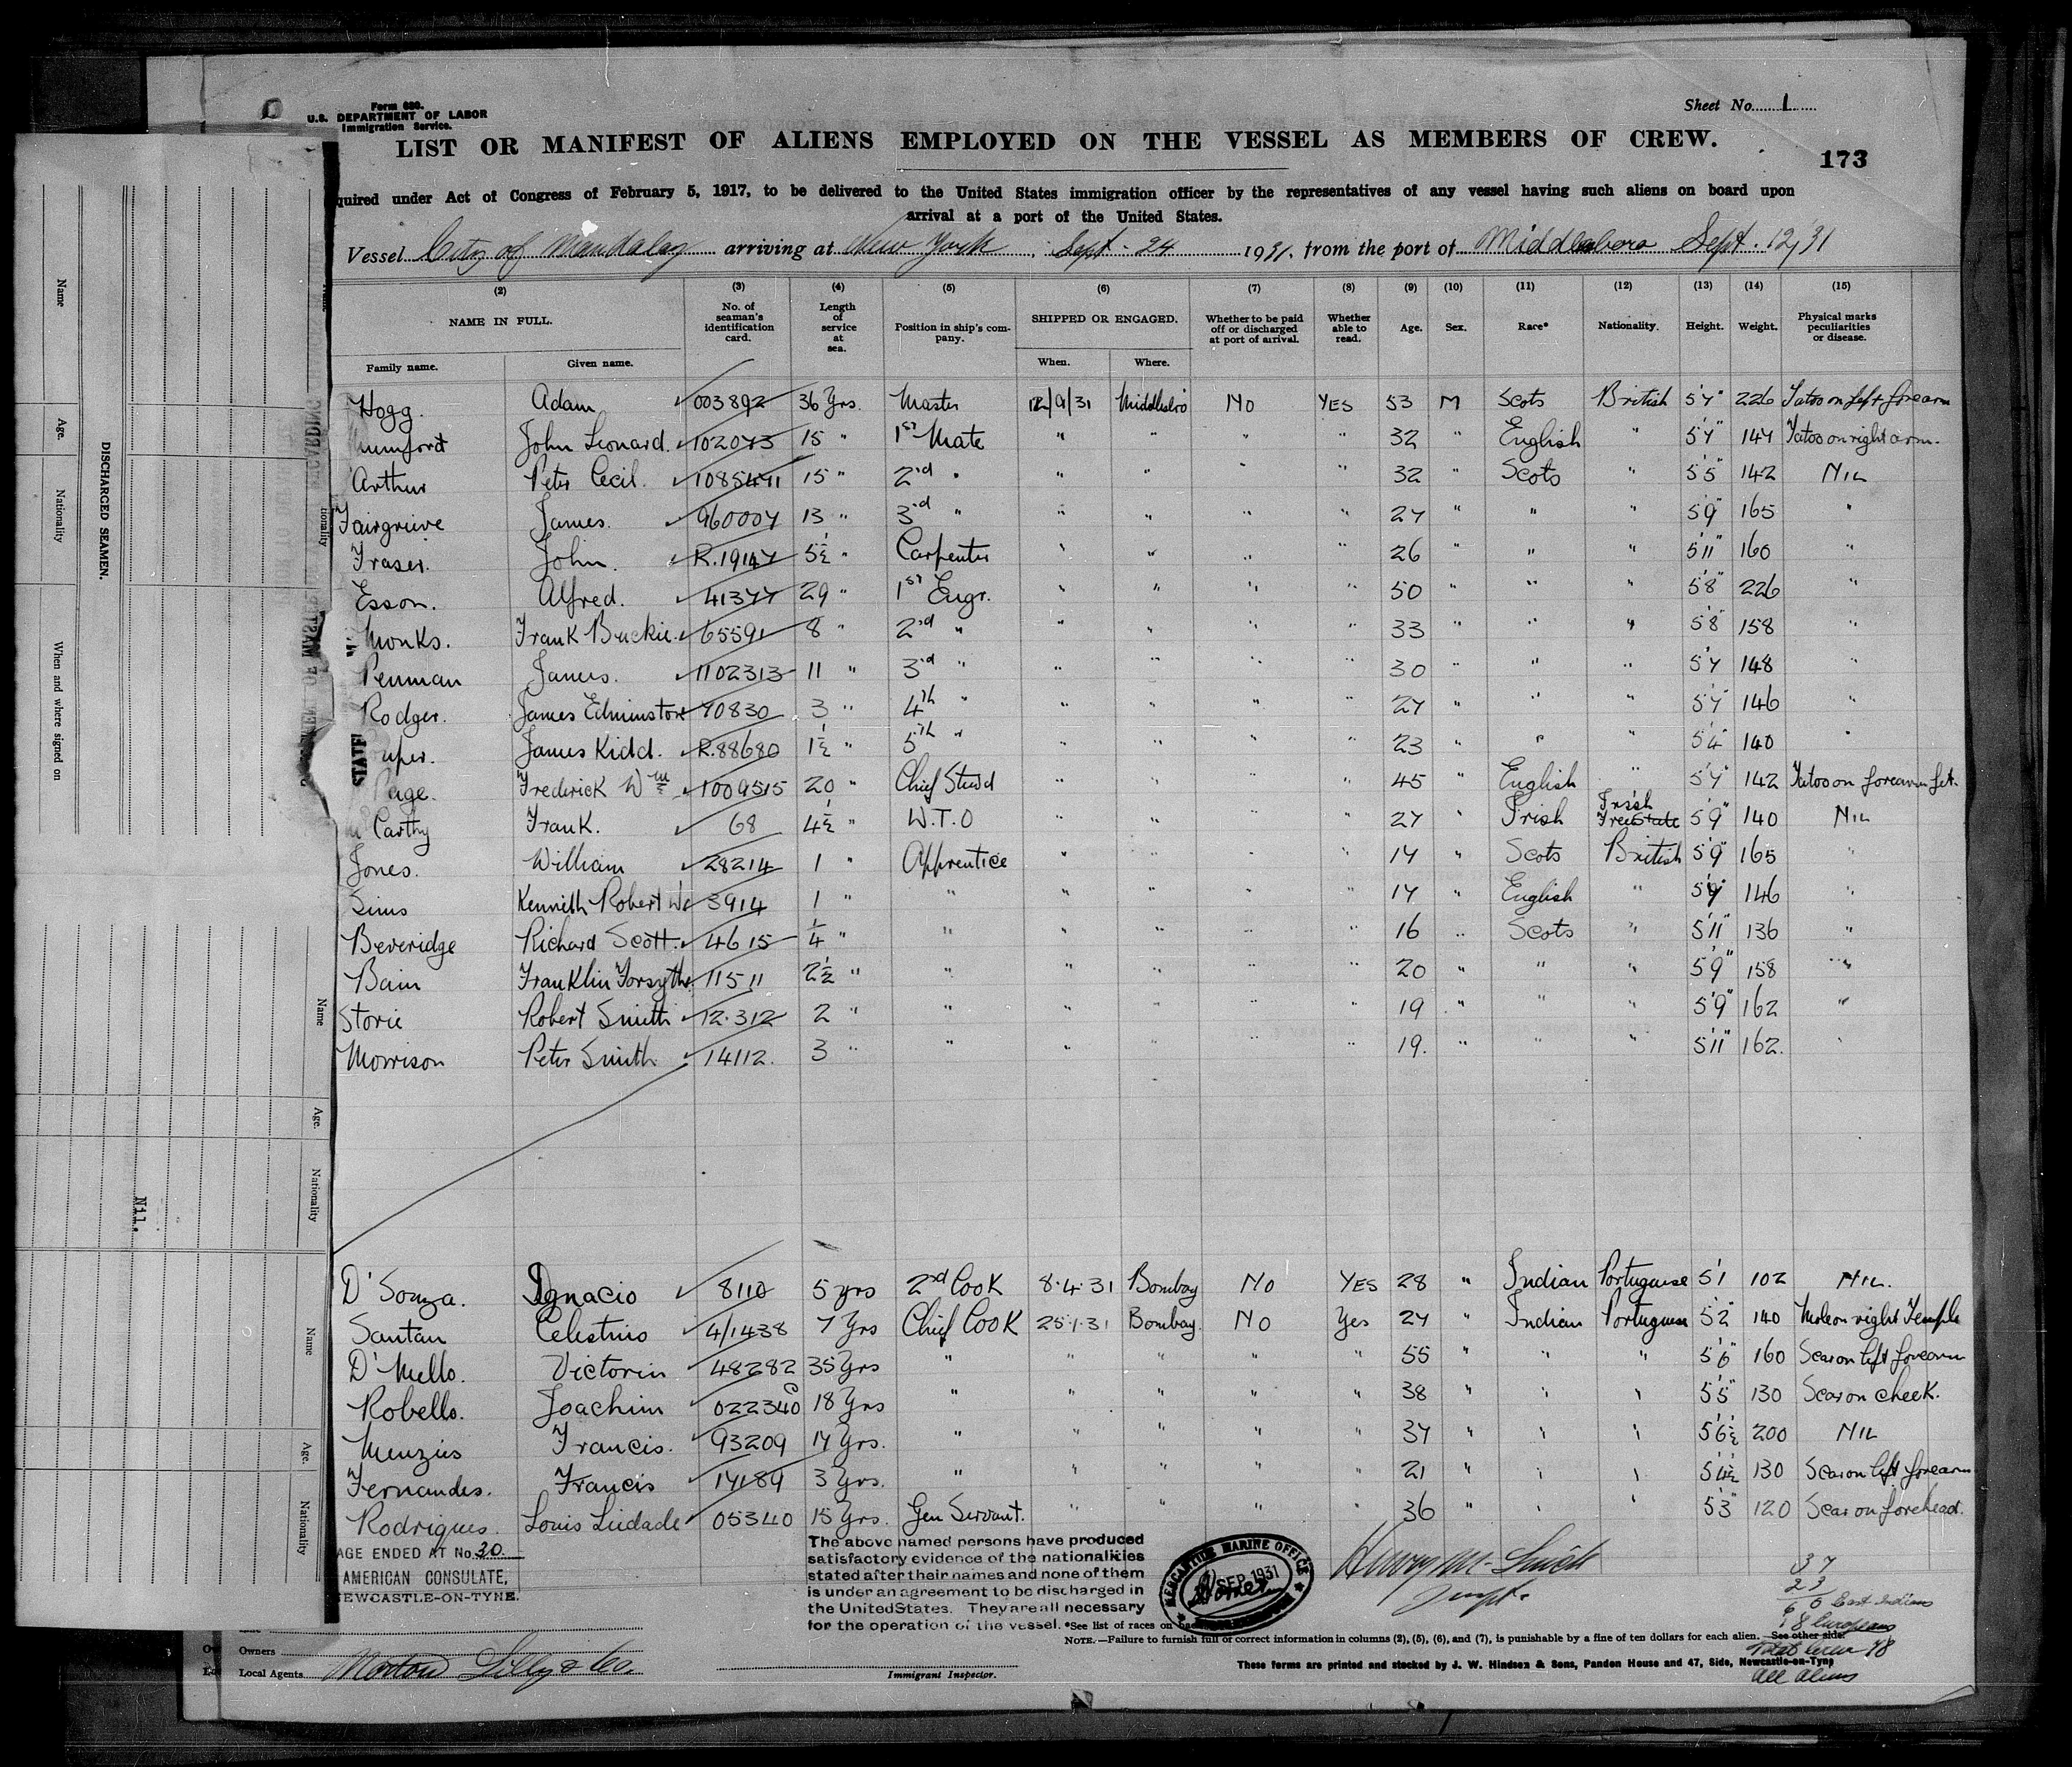 Form 689.
U.S. DEPARTMENT OF LABOR
Immigration Service.
Sheet No. 1
LIST OR MANIFEST OF ALIENS EMPLOYED ON THE VESSEL AS MEMBERS OF CREW.
173
quired under Act of Congress of February 5, 1917, to be delivered to the United States immigration officer by the representatives of any vessel having such aliens on board upon
arrival at a port of the United States.
Vessel City of Mandalay arriving at New York, Sept - 24 1931, from the port of Middlesboro Sept. 12/31
(2) (3) (4) (5) (6) (7) (8) (9) (10) (11) (12) (13) (14) (15)
NAME IN FULL. Family name. Given name. No. of seaman's identification card. Length of service at sea. Position in ship's company. SHIPPED OR ENGAGED. When. Where. Whether to be paid off or discharged at port of arrival. Whether able to read. Age. Sex. Race* Nationality. Height. Weight. Physical marks peculiarities or disease.
Hogg. Adam 003892 36 Yrs. Master 12/9/31 Middlesbro NO YES 53 M Scots British 5'7" 226 Tatoo on left forearm
Mumford John Leonard. 102073 15 " 1st Mate " " " " 32 " English " 5'7" 147 Tatoo on right arm.
Arthur Peter Cecil. 1085491 15 " 2nd " " " " " 32 " Scots " 5'5" 142 NIL
Fairgrieve James. 960007 13 " 3rd " " " " " 27 " " " 5'9" 165 "
Fraser. John. R.19147 5½ " Carpenter " " " " 26 " " " 5'11" 160 "
Esson. Alfred. 41377 29 " 1st Engr. " " " " 50 " " " 5'8" 226 "
Monks. Frank Buckie. 65591 8 " 2nd " " " " " 33 " " " 5'8" 158 "
Penman James. 1102313 11 " 3rd " " " " " 30 " " " 5'7 148 "
Rodger. James Edminston 70830 3 " 4th " " " " " 27 " " " 5'7" 146 "
uper. James Kidd. R.88680 1½ " 5th " " " " " 23 " " " 5'4" 140 "
Page. Frederick Wm 1009515 20 " Chief Stewd " " " " 45 " English " 5'7" 142 Tatoo on forearm left.
Mc Carthy Frank. 68 4½ " W.T.O " " " " 27 " Irish Irish Freestate 5'9" 140 NIL
Jones. William 28214 1 " Apprentice " " " " 17 " Scots British 5'9" 165 "
Sims Kenneth Robert Wr 3914 1 " " " " " " 17 " English " 5'9" 146 "
Beveridge Richard Scott. 4615 ¼ " " " " " " 16 " Scots " 5'11" 136 "
Bain Franklin Forsythe 11511 2½ " " " " " " 20 " " " 5'9" 158 "
Storie Robert Smith 12.312 2 " " " " " " 19 " " " 5'9" 162 "
Morrison Peter Smith 14112. 3 " " " " " " 19. " " " 5'11" 162. "
D'Souza. Ignacio 8110 5 yrs 2nd Cook 8.4.31 Bombay NO YES 28 " Indian Portuguese 5'1 102 NIL.
Santan Celestino 4/1438 7 Yrs Chief Cook 25.1.31 Bombay. NO Yes 27 " Indian Portuguese 5'2" 140 Mole on right Temple
D'Mello. Victorin 48282 35 Yrs " " " " " 55 " " " 5'6" 160 Scar on left forearm
Robello. Joachim 022340 18 Yrs " " " " " 38 " " " 5'5" 130 Scar on cheek.
Menzies Francis. 93209 17 Yrs. " " " " " 37 " " " 5'6½ 200 NIL
Fernandes. Francis 17189 3 Yrs. " " " " " 21 " " " 5'4½ 130 Scar on left forearm
Rodrigues. Louis 05340 15 Yrs. Gen Servant. " " " " 36 " " " 5'3" 120 Scar on forehead.
AGE ENDED AT No. 30.
AMERICAN CONSULATE,
NEWCASTLE-ON-TYNE.
The above named persons have produced
satisfactory evidence of the nationalities
stated after their names and none of them
is under an agreement to be discharged in
the United States. They are all necessary
for the operation of the vessel.
MERCANTILE MARINE OFFICE
SEP 1931
Henry M. Smith
Supt.
37
23
60 East Indians
18 Europeans
Total Crew 78
All Aliens
*See list of races on
NOTE.—Failure to furnish full or correct information in columns (2), (5), (6), and (7), is punishable by a fine of ten dollars for each alien. See other side.
These forms are printed and stocked by J. W. Hindson & Sons, Pandon House and 47, Side, Newcastle-on-Tyne
Owners
Local Agents Norton Lilly & Co.
Immigrant Inspector.
DISCHARGED SEAMEN.
Name
Age.
Nationality
When and where signed on
Name
Age.
Nationality
Nil.
Name
Age.
Nationality
STATE